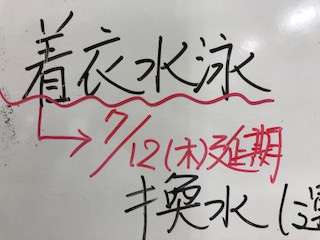 着衣水泳
→ 7/12(木)延期
換水(運